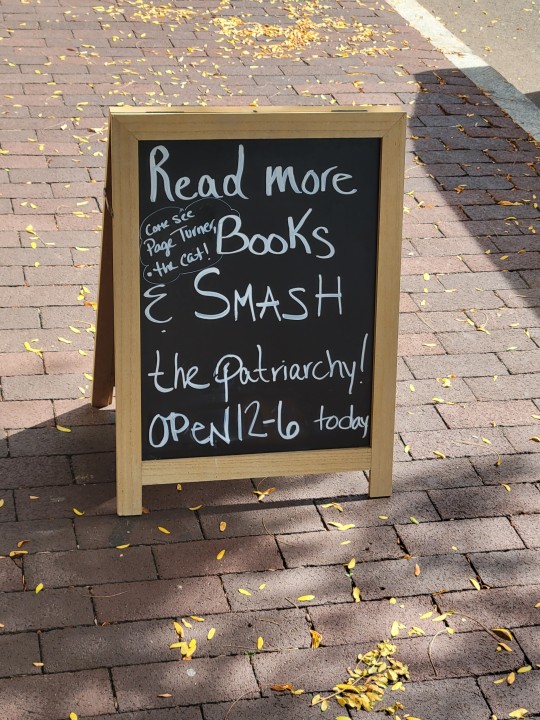 Read more
Come see
Page Turner,
the cat!
Books
& SMASH
the patriarchy!
OPEN 12-6 today